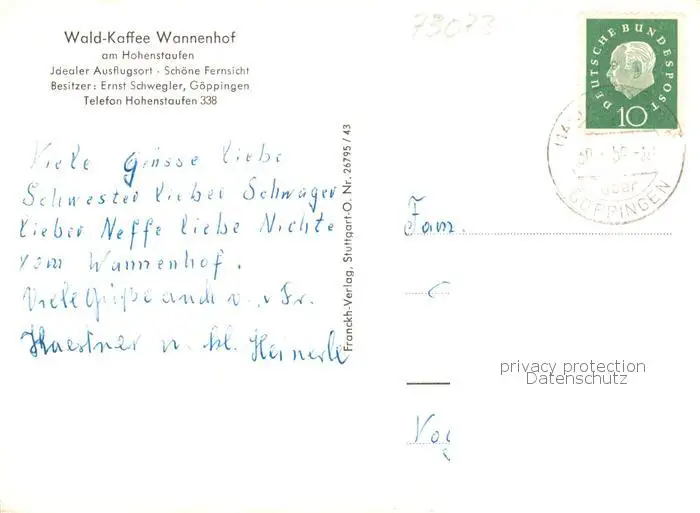 73073
Wald-Kaffee Wannenhof
am Hohenstaufen
Jdealer Ausflugsort - Schöne Fernsicht
Besitzer: Ernst Schwegler, Göppingen
Telefon Hohenstaufen 338
DEUTSCHE BUNDESPOST
10
über
GÖPPINGEN
Viele Grüsse liebe
Schwester lieber Schwager
lieber Neffe liebe Nichte
vom Wannenhof.
Viele Grüße auch v.
Kaestner u. kl. Heinerle
Franckh-Verlag, Stuttgart-O. Nr. 26795 / 43
Fam.
privacy protection
Datenschutz